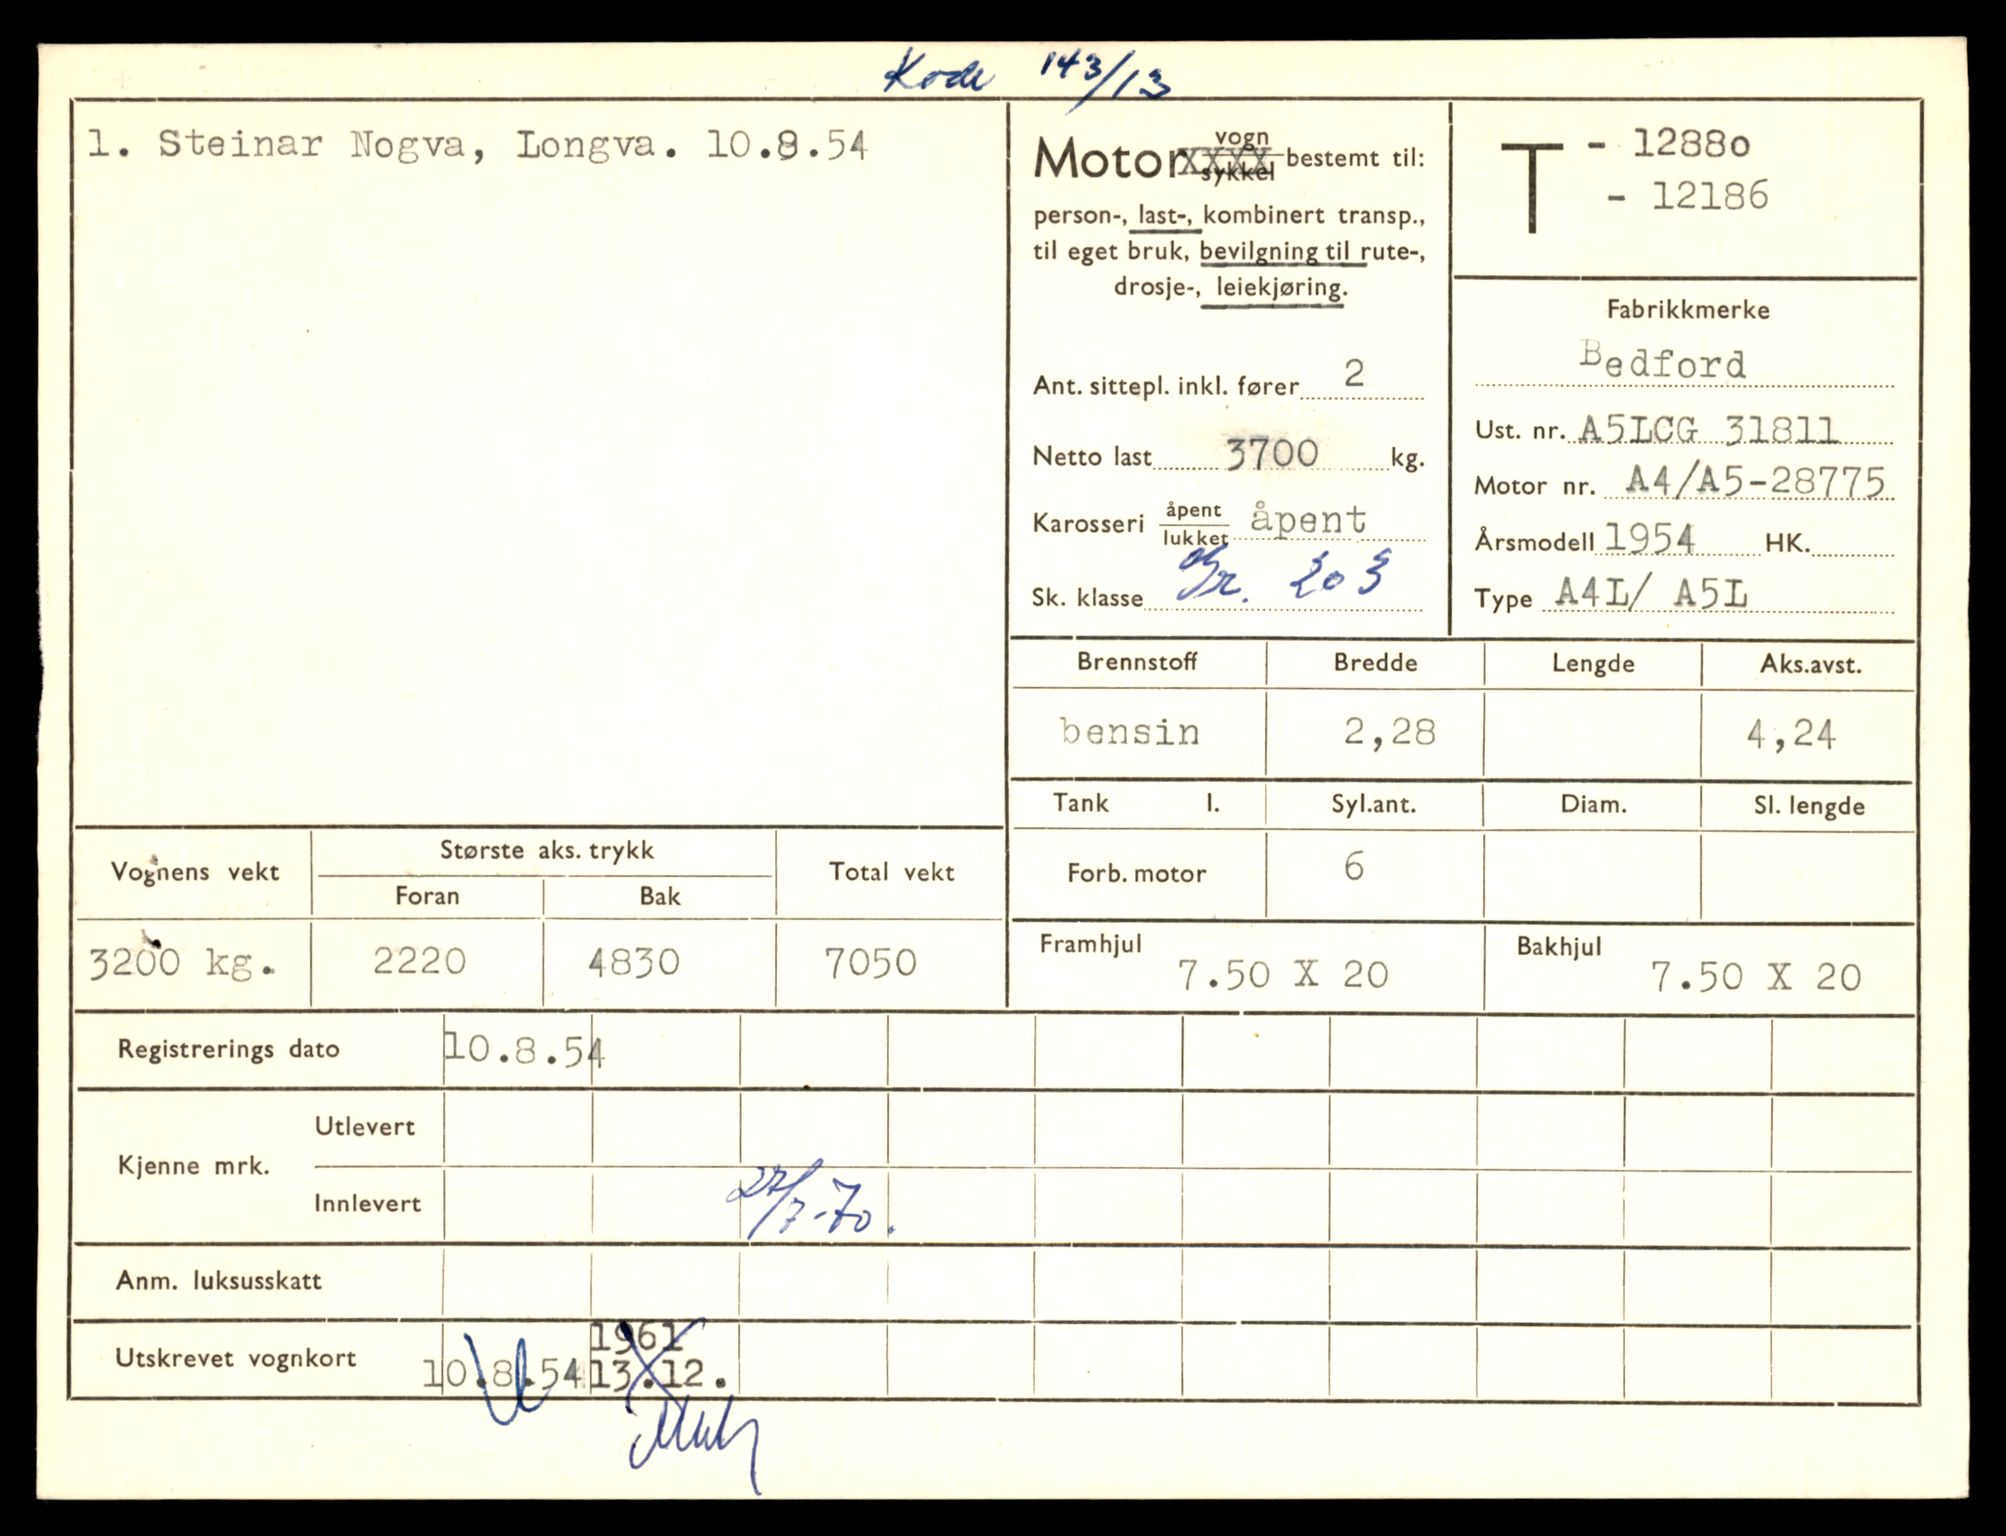 Kode 143/13
1. Steinar Nogva, Longva. 10.8.54
Motor vogn/sykkel XXXX bestemt til:
person-, last-, kombinert transp.,
til eget bruk, bevilgning til rute-,
drosje-, leiekjøring.
Ant. sittepl. inkl. fører 2
Netto last 3700 kg.
Karosseri åpent/lukket åpent
Sk. klasse Gr. 203
T - 12880
- 12186
Fabrikkmerke
Bedford
Ust. nr. A5LCG 31811
Motor nr. A4/A5-28775
Årsmodell 1954 HK.
Type A4L/ A5L
Brennstoff Bredde Lengde Aks.avst.
bensin 2,28 4,24
Tank l. Syl.ant. Diam. Sl. lengde
Forb. motor 6
Framhjul 7.50 X 20 Bakhjul 7.50 X 20
Vognens vekt Største aks. trykk Total vekt
Foran Bak
3200 kg. 2220 4830 7050
Registrerings dato 10.8.54
Kjenne mrk. Utlevert
Innlevert 27/7-70.
Anm. luksusskatt
Utskrevet vognkort 10.8.54 1961
13.12.